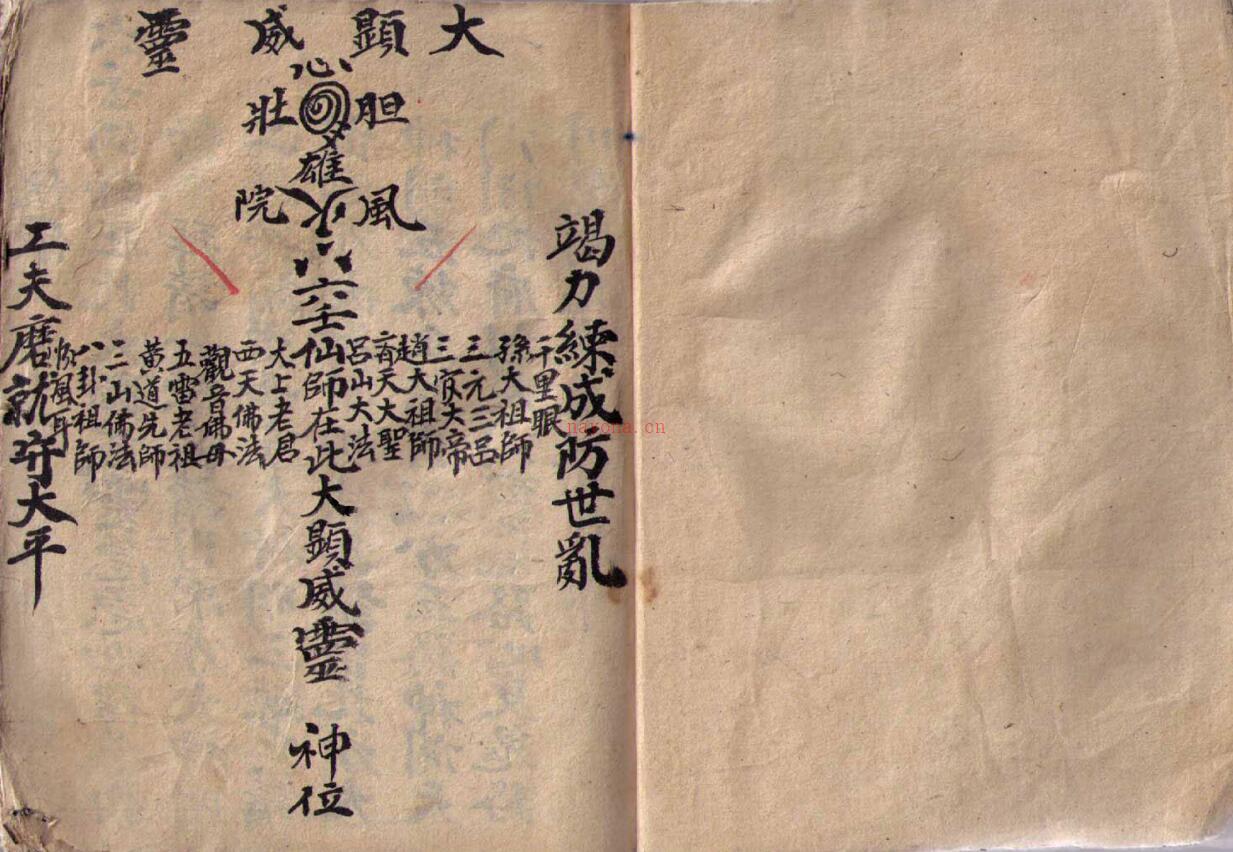 大顯威靈
心
胆壯
雄
風院
竭力練成防世亂
千里眼
孫大祖師
三元三呂
三官大帝
趙大祖師
齊天大聖
呂山大法
六壬仙師在此大顯威靈 神位
太上老君
西天佛法
觀音佛母
五雷老祖
黃道先師
三山儒法
八卦祖師
順風耳
工夫磨就守大平
nayona.cn